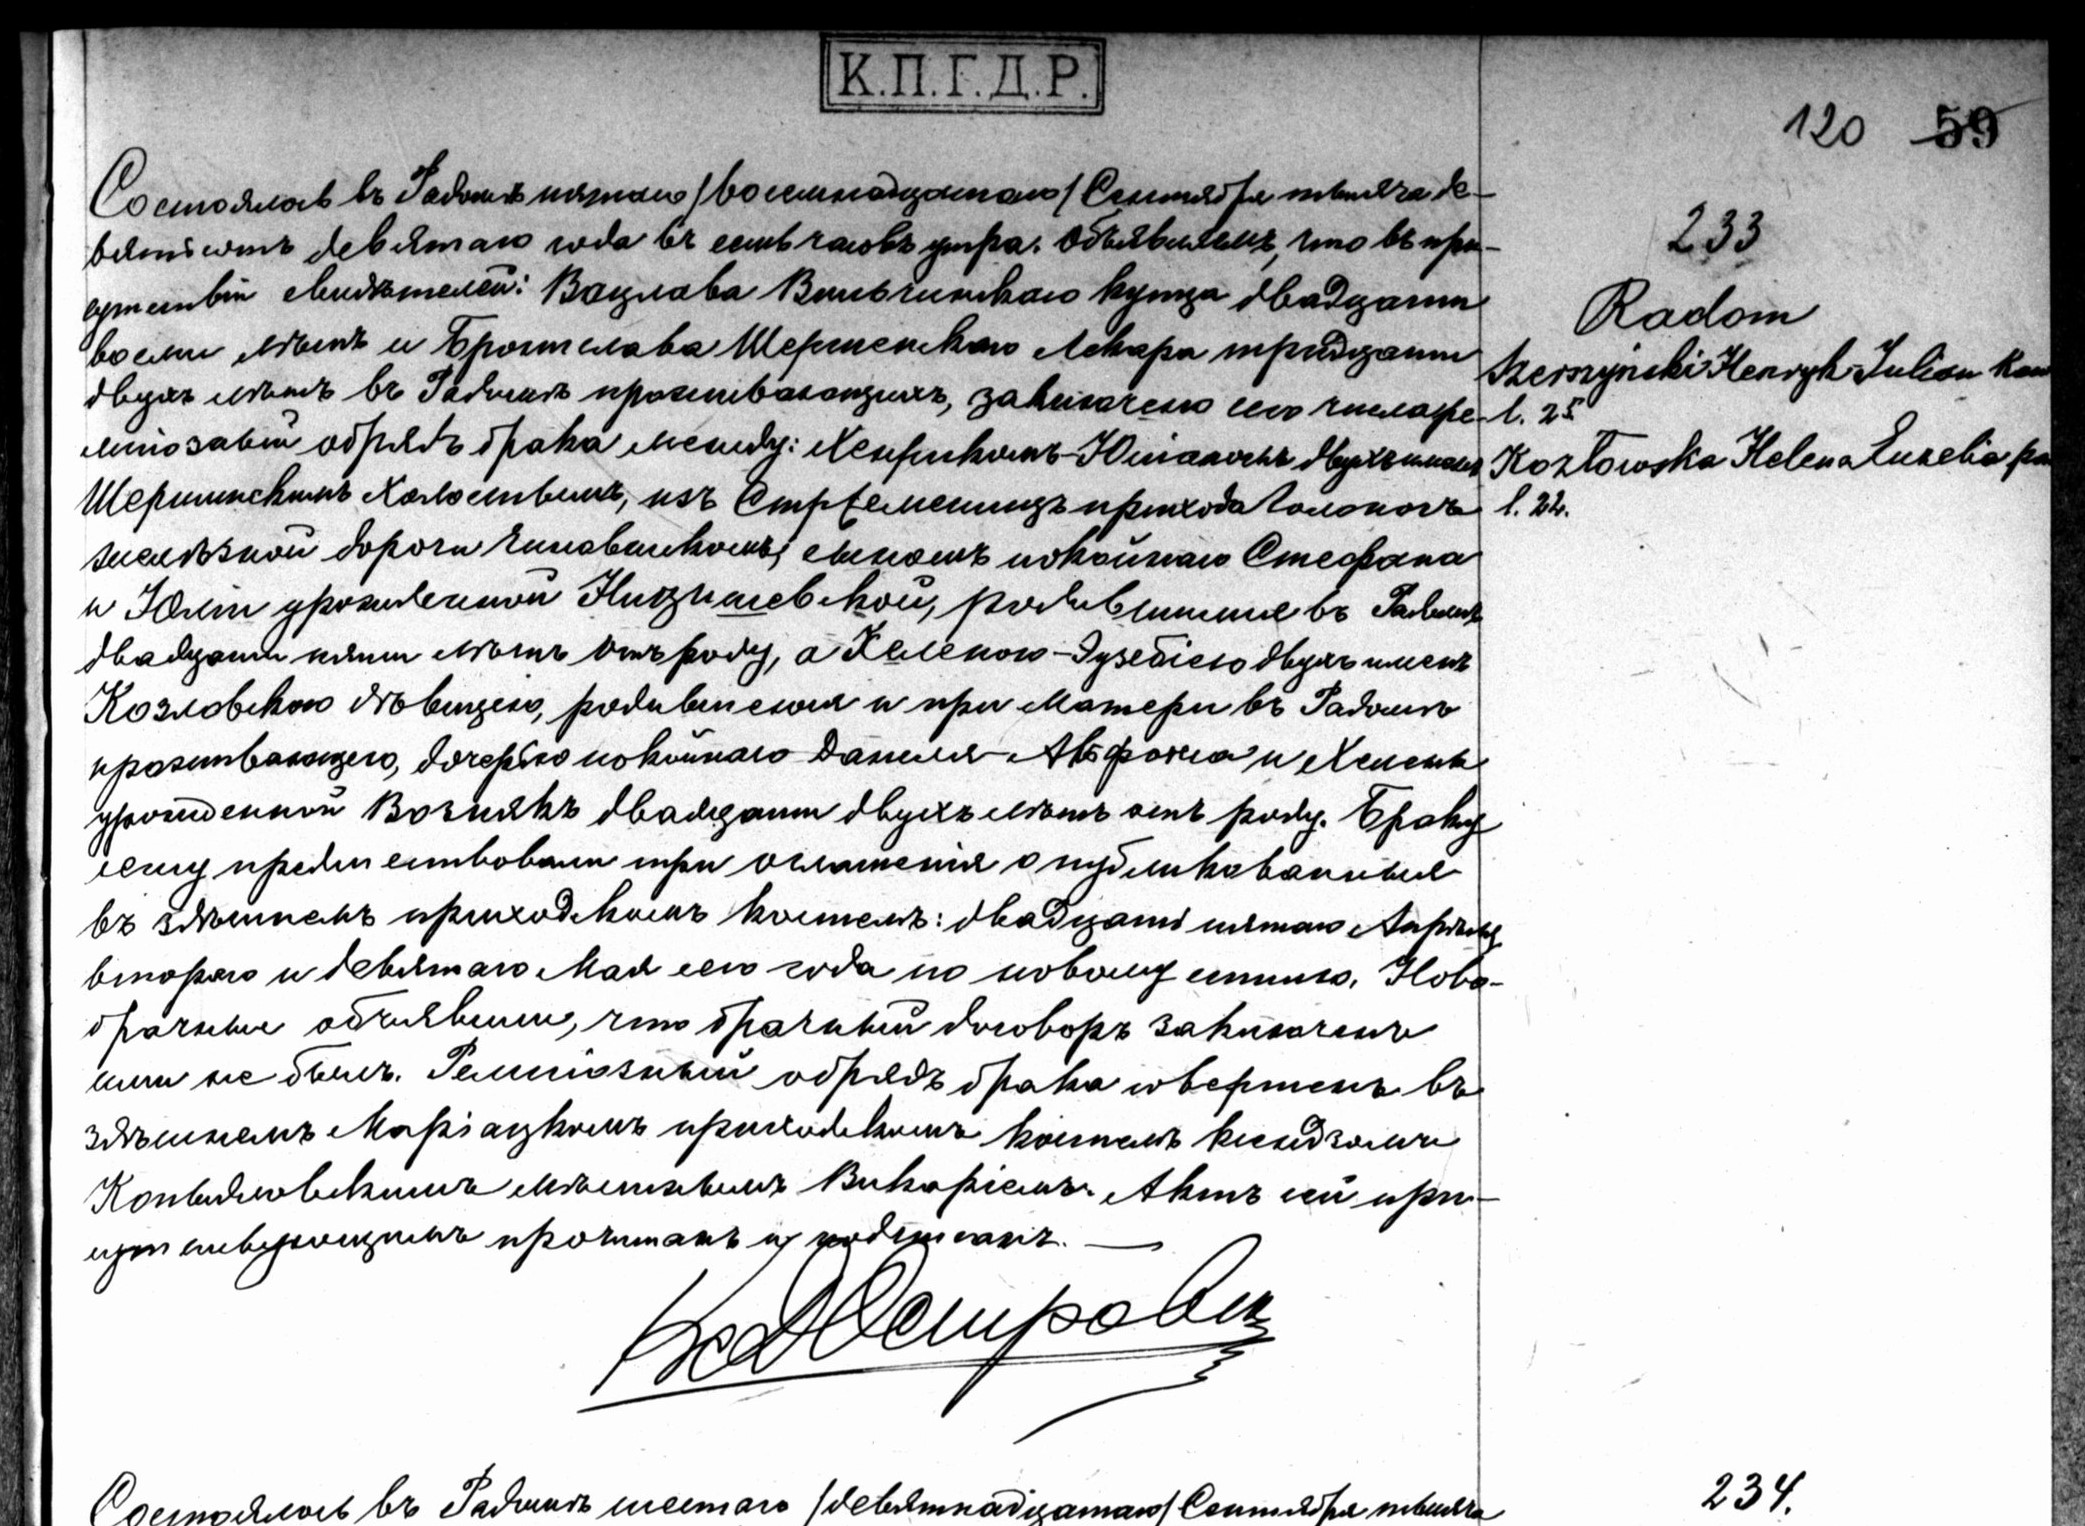 К.П.Г.Д.Р.
120 59
Состоялось въ Радомѣ пятаго /восемнадцатаго/ Сентября тысяча де-
вятьсотъ девятаго года въ семь часовъ утра. Объявляемъ, что въ при-
сутствіи свидѣтелей: Вацлава Виньчинскаго купца двадцати
восьми лѣтъ и Бронислава лекаря тридцати
двухъ лѣтъ въ Радомѣ проживающихъ, заключенъ сего числа ре-
лигіозный обрядъ брака между: Хенрикомъ-Юліаномъ двухъ именъ
Шершинскимъ холостымъ, изъ прихода
желѣзной дороги чиновникомъ, сыномъ покойнаго Стефана
и Юліи урожденной родившимся въ Радомѣ
двадцати пяти лѣтъ отъ роду, а Хеленою-Эузебіею двухъ именъ
Козловскою дѣвицею, родившеюся и при матери въ Радомѣ
проживающею, дочерью покойнаго Даніеля и Хелены
урожденной Вознякъ двадцати двухъ лѣтъ отъ роду. Браку
сему предшествовали три оглашенія опубликованныя
въ здѣшнемъ приходскомъ костелѣ: двадцать пятаго Апрѣля,
втораго и девятаго Мая сего года по новому стилю. Ново-
брачные объявили, что брачный договоръ заключенъ
ими не былъ. Религіозный обрядъ брака совершенъ въ
здѣшнемъ Маріацкомъ приходскомъ костелѣ ксендзомъ
мѣстнымъ Викаріемъ. Актъ сей при-
сутствующимъ прочитанъ и подписанъ. —
233
Radom
Szerszyński Henryk-Julian kaw
l. 25
Kozłowska Helena Euzebia pa
l. 22.
Состоялось въ Радомѣ шестаго /девятнадцатаго/ Сентября тысяча
234.